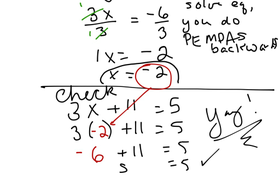 3x = -6
3 3
solve eq,
you do
PEMDAS
backwards
1x = -2
x = -2
check
3x + 11 = 5
3(-2) + 11 = 5
-6 + 11 = 5
5 = 5 ✓
Yay!